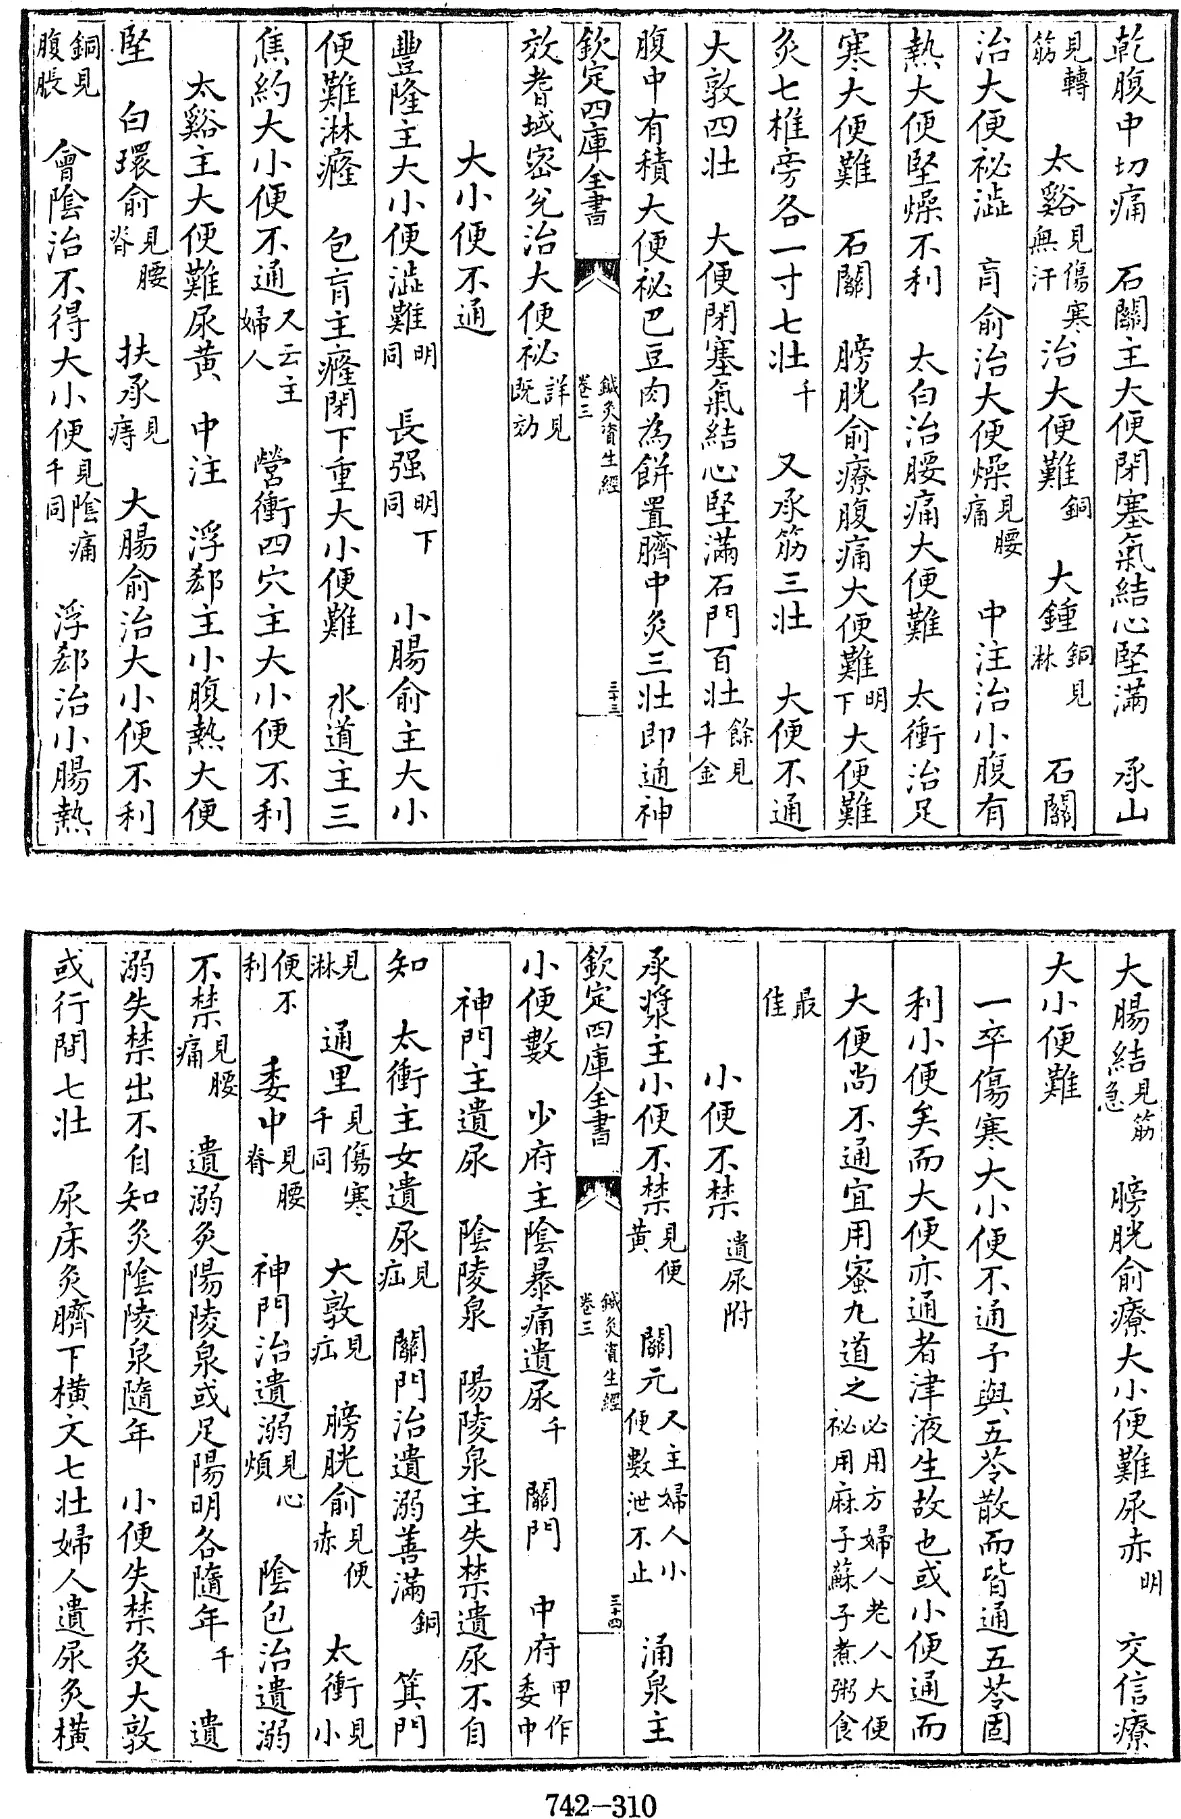 乾腹中切痛　石關主大便閉塞氣結心堅滿　承山
見轉筋　太谿見傷寒無汗治大便難銅　大鍾銅見淋　石關
治大便秘澁　肓俞治大便燥見腰痛　中注治小腹有
熱大便堅燥不利　太白治腰痛大便難　太衝治足
寒大便難　石關　膀胱俞療腹痛大便難明下大便難
灸七椎旁各一寸七壯千　又承筋三壯　大便不通
大敦四壯　大便閉塞氣結心堅滿石門百壯餘見千金
腹中有積大便秘巴豆肉為餅置臍中灸三壯即通神
欽定四庫全書　鍼灸資生經卷三　三十三
效耆域密兊治大便秘詳見既効
大小便不通
豐隆主大小便澁難明同　長强明下同　小腸俞主大小
便難淋癃　包肓主癃閉下重大小便難　水道主三
焦約大小便不通又云主婦人　營衝四穴主大小便不利
太谿主大便難尿黃　中注　浮郄主小腹熱大便
堅　白環俞見腰脊　扶承見痔　大腸俞治大小便不利
銅見腹脹　會陰治不得大小便見陰痛千同　浮郄治小腸熱
大腸結見筋急　膀胱俞療大小便難尿赤明　交信療
大小便難
一卒傷寒大小便不通予與五苓散而皆通五苓固
利小便矣而大便亦通者津液生故也或小便通而
大便尚不通宜用蜜九道之必用方婦人老人大便秘用麻子蘇子煮粥食
最佳
小便不禁遺尿附
承漿主小便不禁見便黃　關元又主婦人小便數泄不止　涌泉主
欽定四庫全書　鍼灸資生經卷三　三十四
小便數　少府主陰暴痛遺尿千　關門　中府甲作委中
神門主遺尿　陰陵泉　陽陵泉主失禁遺尿不自
知　太衝主女遺尿見疝　關門治遺溺善滿銅　箕門
見淋　通里見傷寒千同　大敦見疝　膀胱俞見便赤　太衝見小
便不利　委中見腰脊　神門治遺溺見心煩　陰包治遺溺
不禁見腰痛　遺溺灸陽陵泉或足陽明各隨年千　遺
溺失禁出不自知灸陰陵泉隨年　小便失禁灸大敦
或行間七壯　尿床灸臍下橫文七壯婦人遺尿灸橫
742-310